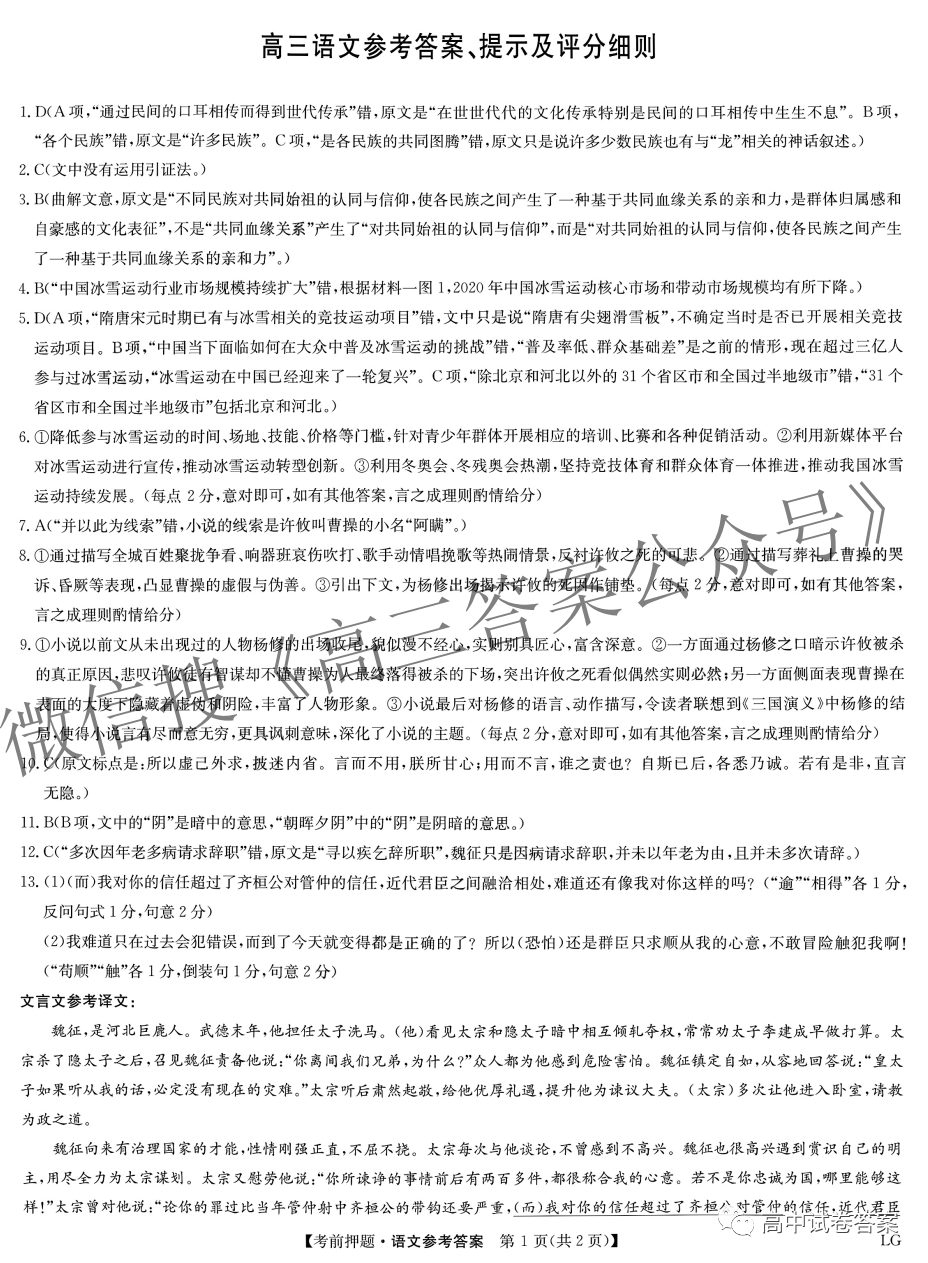 高三语文参考答案、提示及评分细则
1. D(A项,“通过民间的口耳相传而得到世代传承”错,原文是“在世世代代的文化传承特别是民间的口耳相传中生生不息”。B项,
“各个民族”错,原文是“许多民族”。C项,“是各民族的共同图腾”错,原文只是说许多少数民族也有与“龙”相关的神话叙述。)
2. C(文中没有运用引证法。)
3. B(曲解文意,原文是“不同民族对共同始祖的认同与信仰,使各民族之间产生了一种基于共同血缘关系的亲和力,是群体归属感和
自豪感的文化表征”,不是“共同血缘关系”产生了“对共同始祖的认同与信仰”,而是“对共同始祖的认同与信仰,使各民族之间产生
了一种基于共同血缘关系的亲和力”。)
4. B(“中国冰雪运动行业市场规模持续扩大”错,根据材料一图1,2020年中国冰雪运动核心市场和带动市场规模均有所下降。)
5. D(A项,“隋唐宋元时期已有与冰雪相关的竞技运动项目”错,文中只是说“隋唐有尖翘滑雪板”,不确定当时是否已开展相关竞技
运动项目。B项,“中国当下面临如何在大众中普及冰雪运动的挑战”错,“普及率低、群众基础差”是之前的情形,现在超过三亿人
参与过冰雪运动,“冰雪运动在中国已经迎来了一轮复兴”。C项,“除北京和河北以外的31个省区市和全国过半地级市”错,“31个
省区市和全国过半地级市”包括北京和河北。)
6. ①降低参与冰雪运动的时间、场地、技能、价格等门槛,针对青少年群体开展相应的培训、比赛和各种促销活动。②利用新媒体平台
对冰雪运动进行宣传,推动冰雪运动转型创新。③利用冬奥会、冬残奥会热潮,坚持竞技体育和群众体育一体推进,推动我国冰雪
运动持续发展。(每点2分,意对即可,如有其他答案,言之成理则酌情给分)
7. A(“并以此为线索”错,小说的线索是许攸叫曹操的小名“阿瞒”。)
8. ①通过描写全城百姓聚拢争看、响器班哀伤吹打、歌手动情唱挽歌等热闹情景,反衬许攸之死的可悲。②通过描写葬礼上曹操的哭
诉、昏厥等表现,凸显曹操的虚假与伪善。③引出下文,为杨修出场揭示许攸的死因作铺垫。(每点2分,意对即可,如有其他答案,
言之成理则酌情给分)
9. ①小说以前文从未出现过的人物杨修的出场收尾,貌似漫不经心,实则别具匠心,富含深意。②一方面通过杨修之口暗示许攸被杀
的真正原因,悲叹许攸徒有智谋却不懂曹操为人最终落得被杀的下场,突出许攸之死看似偶然实则必然;另一方面侧面表现曹操在
表面的大度下隐藏着虚伪和阴险,丰富了人物形象。③小说最后对杨修的语言、动作描写,令读者联想到《三国演义》中杨修的结
局,使得小说言有尽而意无穷,更具讽刺意味,深化了小说的主题。(每点2分,意对即可,如有其他答案,言之成理则酌情给分)
10. C(原文标点是:所以虚己外求,披迷内省。言而不用,朕所甘心;用而不言,谁之责也?自斯已后,各悉乃诚。若有是非,直言
无隐。)
11. B(B项,文中的“阴”是暗中的意思,“朝晖夕阴”中的“阴”是阴暗的意思。)
12. C(“多次因年老多病请求辞职”错,原文是“寻以疾乞辞所职”,魏征只是因病请求辞职,并未以年老为由,且并未多次请辞。)
13. (1)(而)我对你的信任超过了齐桓公对管仲的信任,近代君臣之间融洽相处,难道还有像我对你这样的吗?(“逾”“相得”各1分,
反问句式1分,句意2分)
(2)我难道只在过去会犯错误,而到了今天就变得都是正确的了?所以(恐怕)还是群臣只求顺从我的心意,不敢冒险触犯我啊!
(“苟顺”“触”各1分,倒装句1分,句意2分)
文言文参考译文:
魏征,是河北巨鹿人。武德末年,他担任太子洗马。(他)看见太宗和隐太子暗中相互倾轧夺权,常常劝太子李建成早做打算。太
宗杀了隐太子之后,召见魏征责备他说:“你离间我们兄弟,为什么?”众人都为他感到危险害怕。魏征镇定自如,从容地回答说:“皇太
子如果听从我的话,必定没有现在的灾难。”太宗听后肃然起敬,给他优厚礼遇,提升他为谏议大夫。(太宗)多次让他进入卧室,请教
为政之道。
魏征向来有治理国家的才能,性情刚强正直,不屈不挠。太宗每次与他谈论,不曾感到不高兴。魏征也很高兴遇到赏识自己的明
主,用尽全力为太宗谋划。太宗又慰劳他说:“你所谏诤的事情前后有两百多件,都很称合我的心意。若不是你忠诚为国,哪里能够这
样!”太宗曾对他说:“论你的罪过比当年管仲射中齐桓公的带钩还要严重,(而)我对你的信任超过了齐桓公对管仲的信任,近代君臣
【考前押题·语文参考答案 第1页(共2页)】
LG
微信搜《高三答案公众号》
高中试卷答案